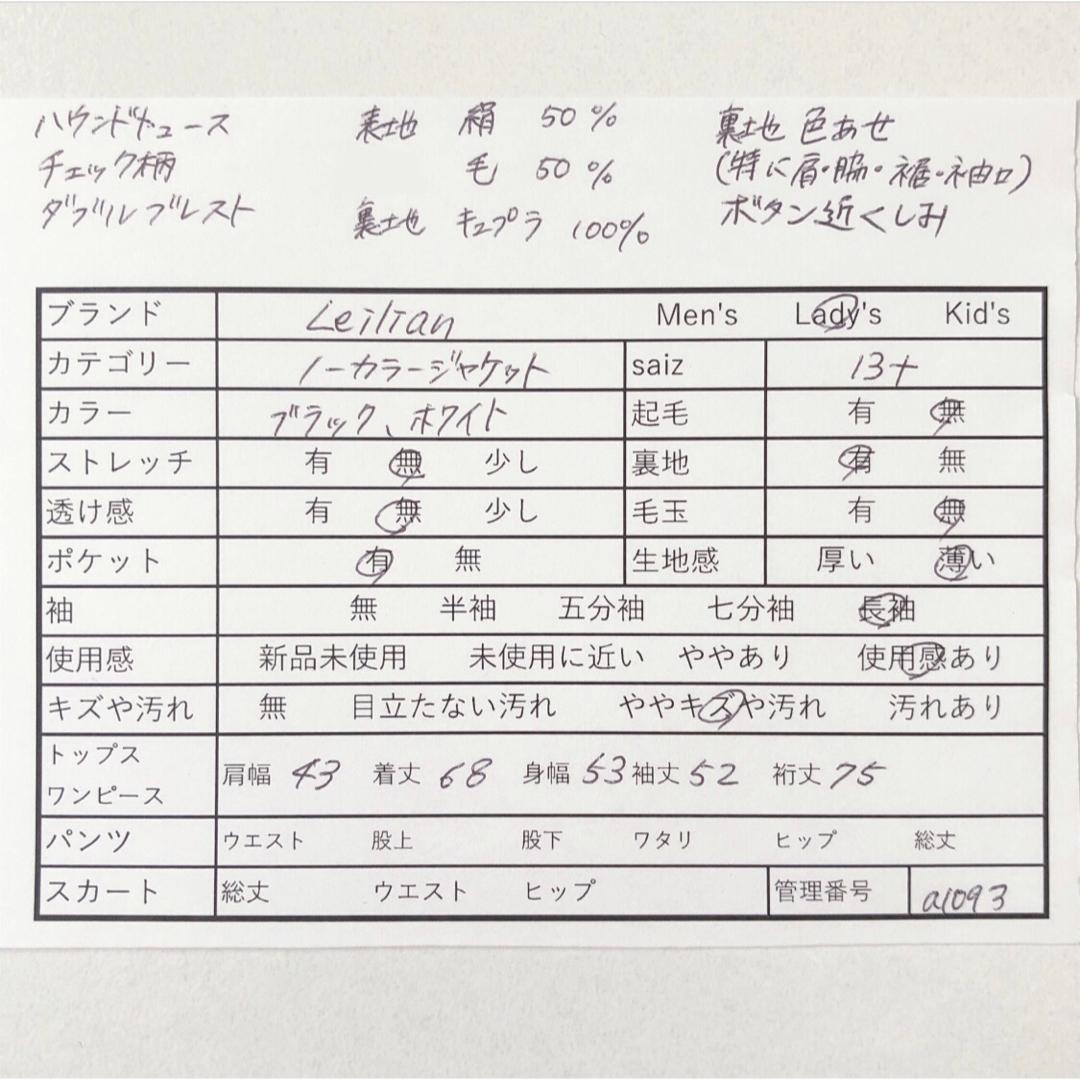 ハウンドトュース 表地 絹 50% 裏地 色あせ
チェック柄 毛 50% (特に肩・脇・裾・袖口)
ダブルブレスト 裏地 キュプラ 100% ボタン近くしみ
ブランド Leilian Men's Lady's Kid's
カテゴリー ノーカラージャケット saiz 13+
カラー ブラック、ホワイト 起毛 有 無
ストレッチ 有 無 少し 裏地 有 無
透け感 有 無 少し 毛玉 有 無
ポケット 有 無 生地感 厚い 薄い
袖 無 半袖 五分袖 七分袖 長袖
使用感 新品未使用 未使用に近い ややあり 使用感あり
キズや汚れ 無 目立たない汚れ ややキズや汚れ 汚れあり
トップス
ワンピース 肩幅 43 着丈 68 身幅 53 袖丈 52 裄丈 75
パンツ ウエスト 股上 股下 ワタリ ヒップ 総丈
スカート 総丈 ウエスト ヒップ 管理番号 a1093